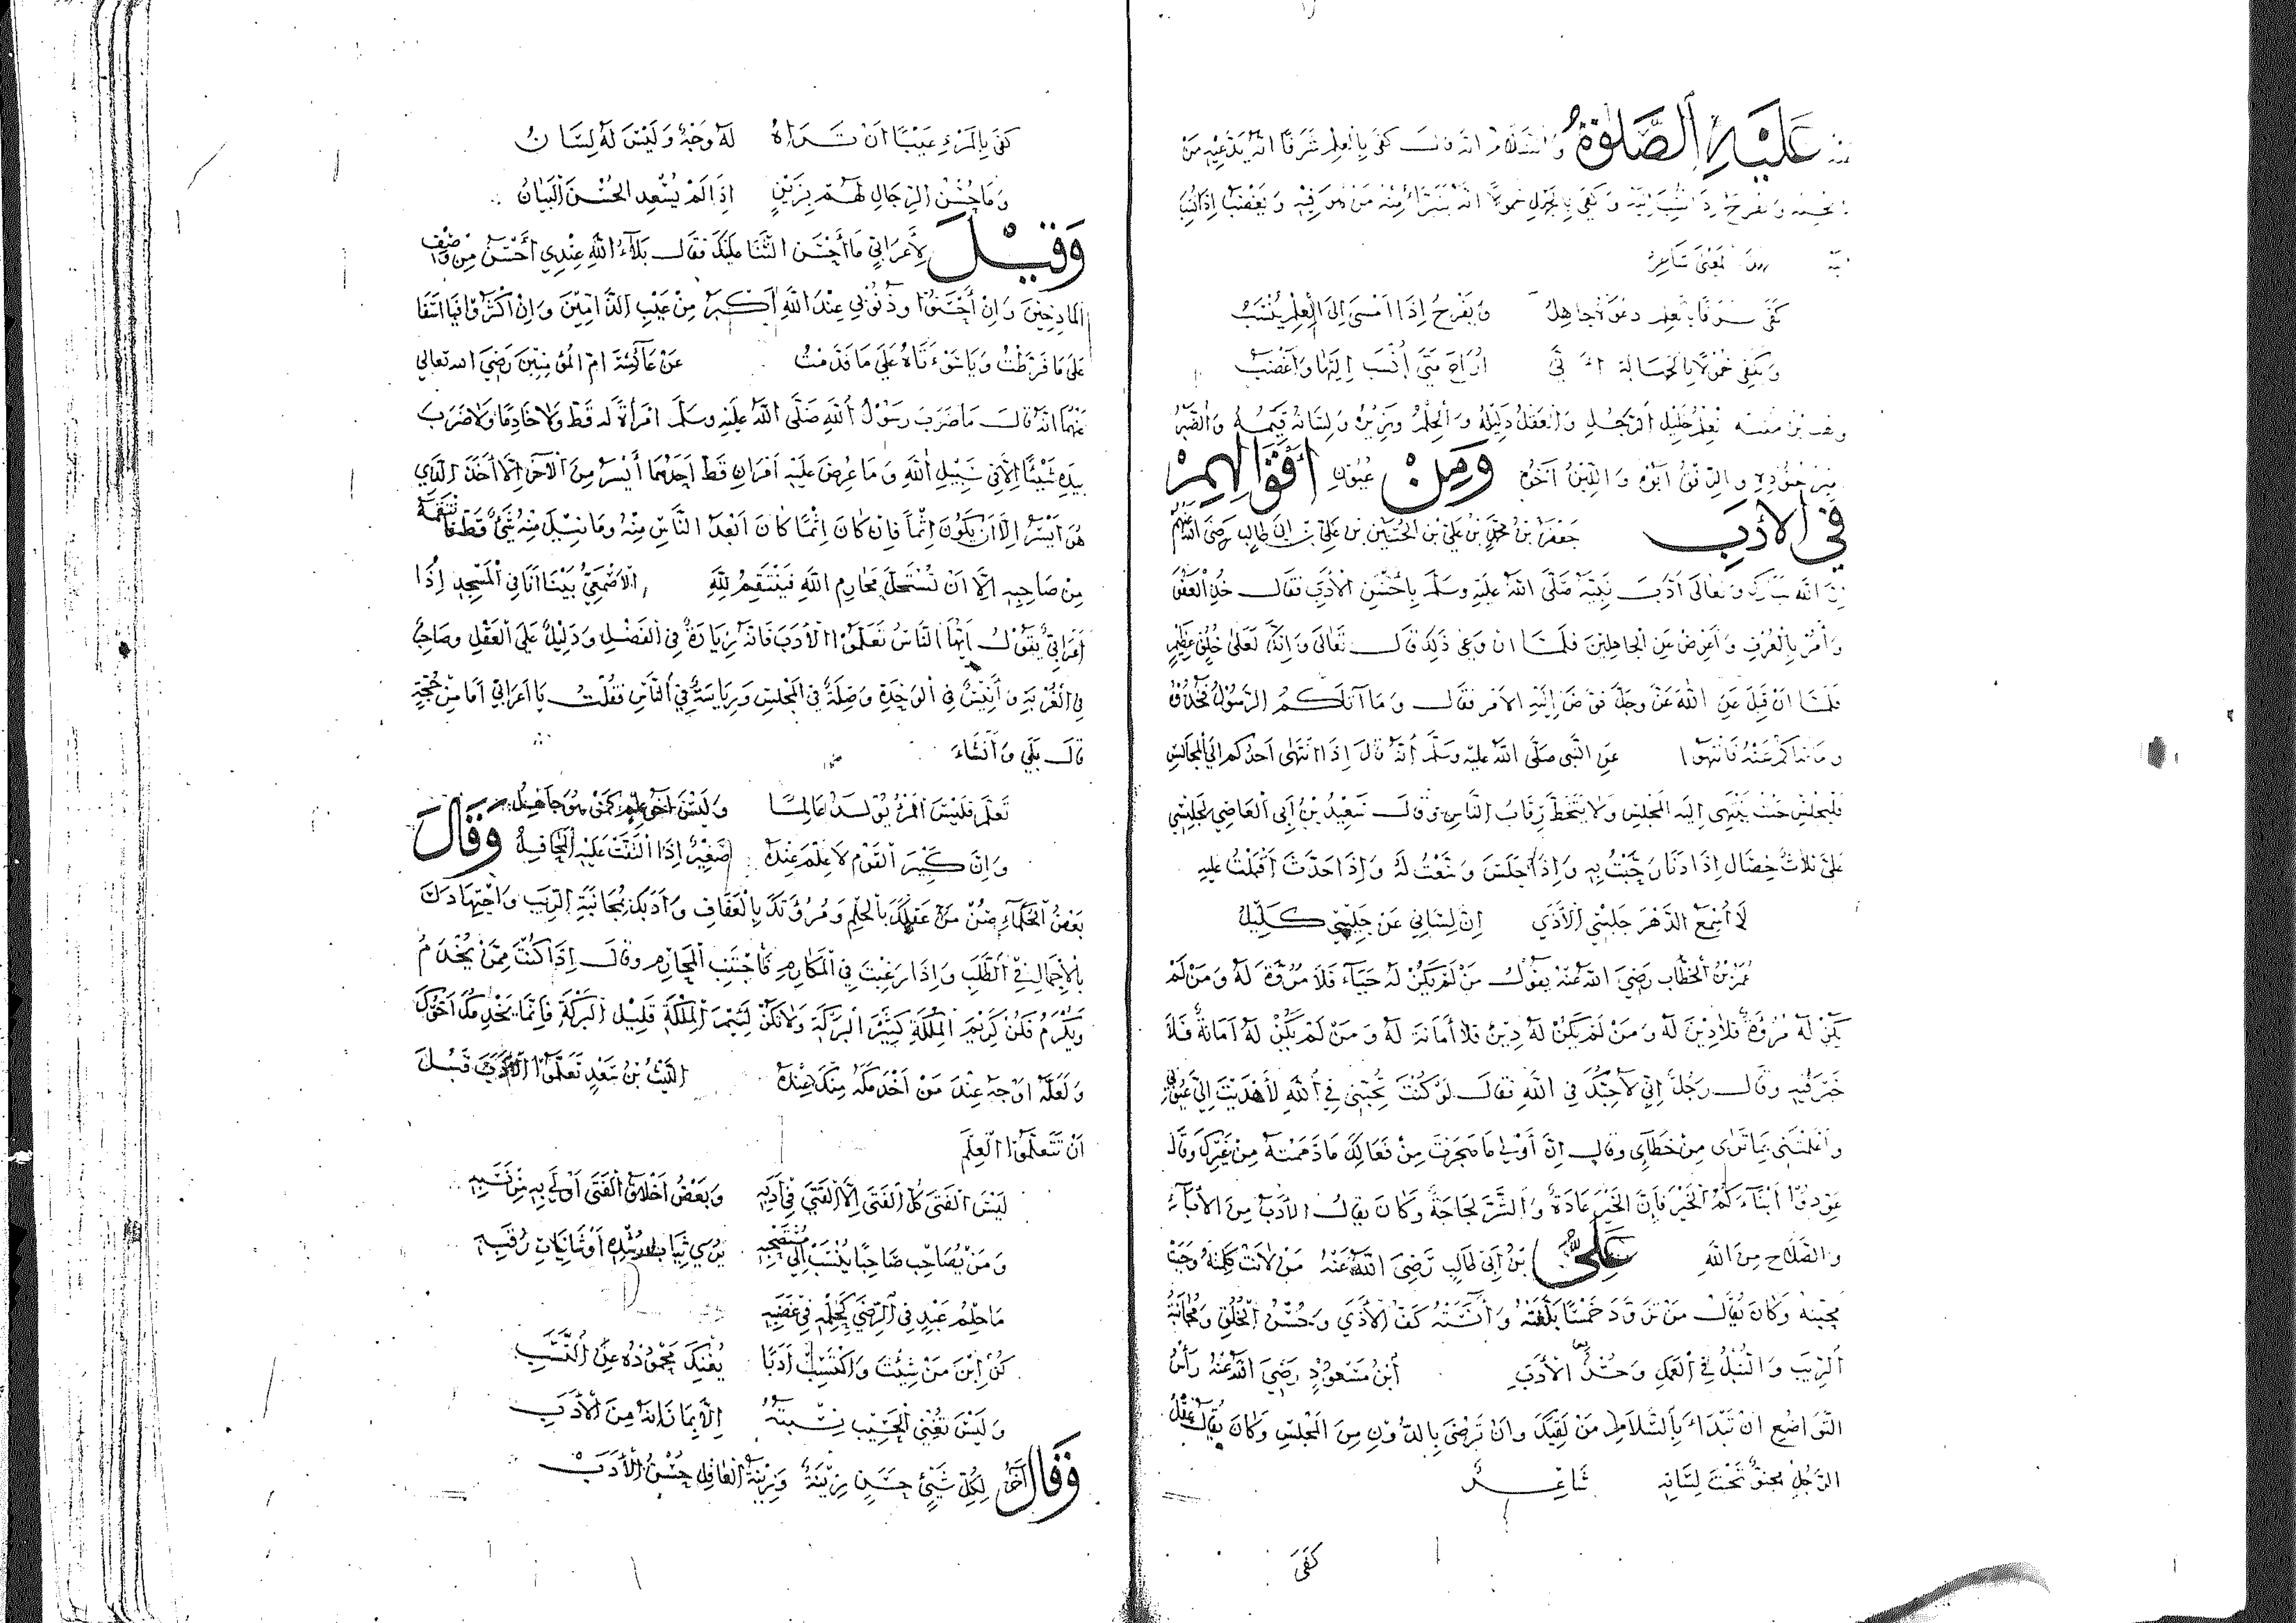 عليه الصلوة والسلام انه قال كفى بالعلم شرفا انه يدعيه من
يحسنه ويفرح اذا نسب اليه وكفى بالجهل خمولا انه يتبرأ منه من هو فيه ويغضب اذا نسب
اليه معنى شاعر
كفى شرفا بالعلم دعواه جاهل ويفرح اذا امسى الى العلم ينسب
ويكفي خمولا بالجهالة انني اراع متى انسب اليها واغضب
العلم خليل الرجل والعقل دليله والحلم وزيره ولسانه قيمه والصبر
من جنوده والرفق ابوه واللين اخوه ومن عيون أقوالهم
في الأدب جعفر بن محمد بن علي بن الحسين بن علي بن ابي طالب رضي الله عنهم
ان الله تبارك وتعالى أدب نبيه صلى الله عليه وسلم باحسن الأدب فقال خذ العفو
وأمر بالعرف وأعرض عن الجاهلين فلما ان وعى ذلك قال تعالى وانك لعلى خلق عظيم
فلما ان قبل عن الله عز وجل فوض اليه الامر فقال وما آتاكم الرسول فخذوه
وما نهاكم عنه فانتهوا عن النبي صلى الله عليه وسلم أنه قال اذا انتهى احدكم الى المجالس
فليجلس حيث ينتهى اليه المجلس ولا يتخط رقاب الناس وقال سعيد بن أبي العاصي لجليسي
على ثلاث خصال اذا دنا رحبت به واذا جلس وسعت له واذا حدث اقبلت عليه
لا اسمع الدهر جليسي الأذى ان لساني عن جليسي كليل
عمر بن الخطاب رضي الله عنه يقول من لم يكن له حياء فلا مروة له ومن لم
يكن له مروة فلا دين له ومن لم يكن له دين فلا أمانة له ومن لم يكن له امانة فلا
خير فيه وقال رجل اني لاحبك في الله فقال لو كنت تحبني في الله لأهديت الي عيوبي
وأعلمتني بما ترى من خطاي وقال ان أولى ما هجرت من فعالك ما ذممته من غيرك وقال
عودوا أبناءكم الخير فان الخير عادة والشر لجاجة وكان يقال الأدب من الأباء
والصلاح من الله علي بن أبي طالب رضي الله عنه من لانت كلمته وجبت
محبته وكان يقال من تزود خمسا بلغته وأنسته كف الأذى وحسن الخلق ومجانبة
الريب والنبل في العمل وحسن الأدب أبن مسعود رضي الله عنه رأس
التواضع ان تبدأ بالسلام من لقيك وان ترضى بالدون من المجلس وكان يقال عقل
الرجل مخبو تحت لسانه شاعر
كفى
كفى بالمرء عيبا ان تراه له وجه وليس له لسان
وما حسن الرجال لهم بزين اذا لم يسعد الحسن البيان
وقيل لأعرابي ما أحسن الثنا عليك فقال بلاء الله عندي أحسن من وصف
المادحين وان أحسنوا وذنوبي عند الله أكبر من عيب الذامين وان اكثروا فيا اسفا
على ما فرطت ويا سوءتاه على ما قدمت عن عائشة ام المؤمنين رضي الله تعالى
عنها انها قالت ما ضرب رسول الله صلى الله عليه وسلم امرأة له قط ولا خادما ولا ضرب
بيده شيئا الا في سبيل الله وما عرض عليه امران قط احدهما أيسر من الآخر الا أخذ الذي
هو ايسر الا أن يكون اثما فان كان اثما كان ابعد الناس منه وما نيل منه شيء قط فانتقمه
من صاحبه الا ان تستحل محارم الله فينتقم لله الاصمعي بينا انا في المسجد اذا
أعرابي يقول ايها الناس تعلموا الأدب فانه زيادة في الفضل ودليل على العقل وصاحب
في الغربة وأنيس في الوحدة وصلة في المجلس ورياسة في الناس فقلت يا اعرابي أما من حجة
قال بلى وأنشاء
تعلم فليس المرء يولد عالما وليس اخو علم كمن هو جاهل
وان كبير القوم لا علم عنده صغير اذا التفت عليه المحافل وقال
بعض الحكماء عقلك بالحلم ومروتك بالعفاف وأدبك بمجانبة الريب واجتهادك
بالاجمال في الطلب واذا رغبت في المكارم فاجتنب المحارم وقال اذا كنت ممن يخدم
ويكرم فكن كريم الملكة كثير البركة ولا تكن لئيم الملكة قليل البركة فانما يخدمك اخوك
ولعله اوجه عند من اخدمكه منك عنده الليث بن سعد تعلموا الأدب قبل
ان تتعلموا العلم
ليس الفتى كل الفتى الا الفتى في أدبه وبعض أخلاق الفتى أولى به من نسبه
ومن يصاحب صاحبا ينسب الى مستصحبه
ما حلم عبد في الرضى كحلمه في غضبه
كن ابن من شئت واكتسب أدبا يغنيك محموده عن النسب
وليس تغني الحسيب نسبته الا بما زانه من الأدب
وقال آخر لكل شيئ حسن زينة وزينة العاقل حسن الأدب